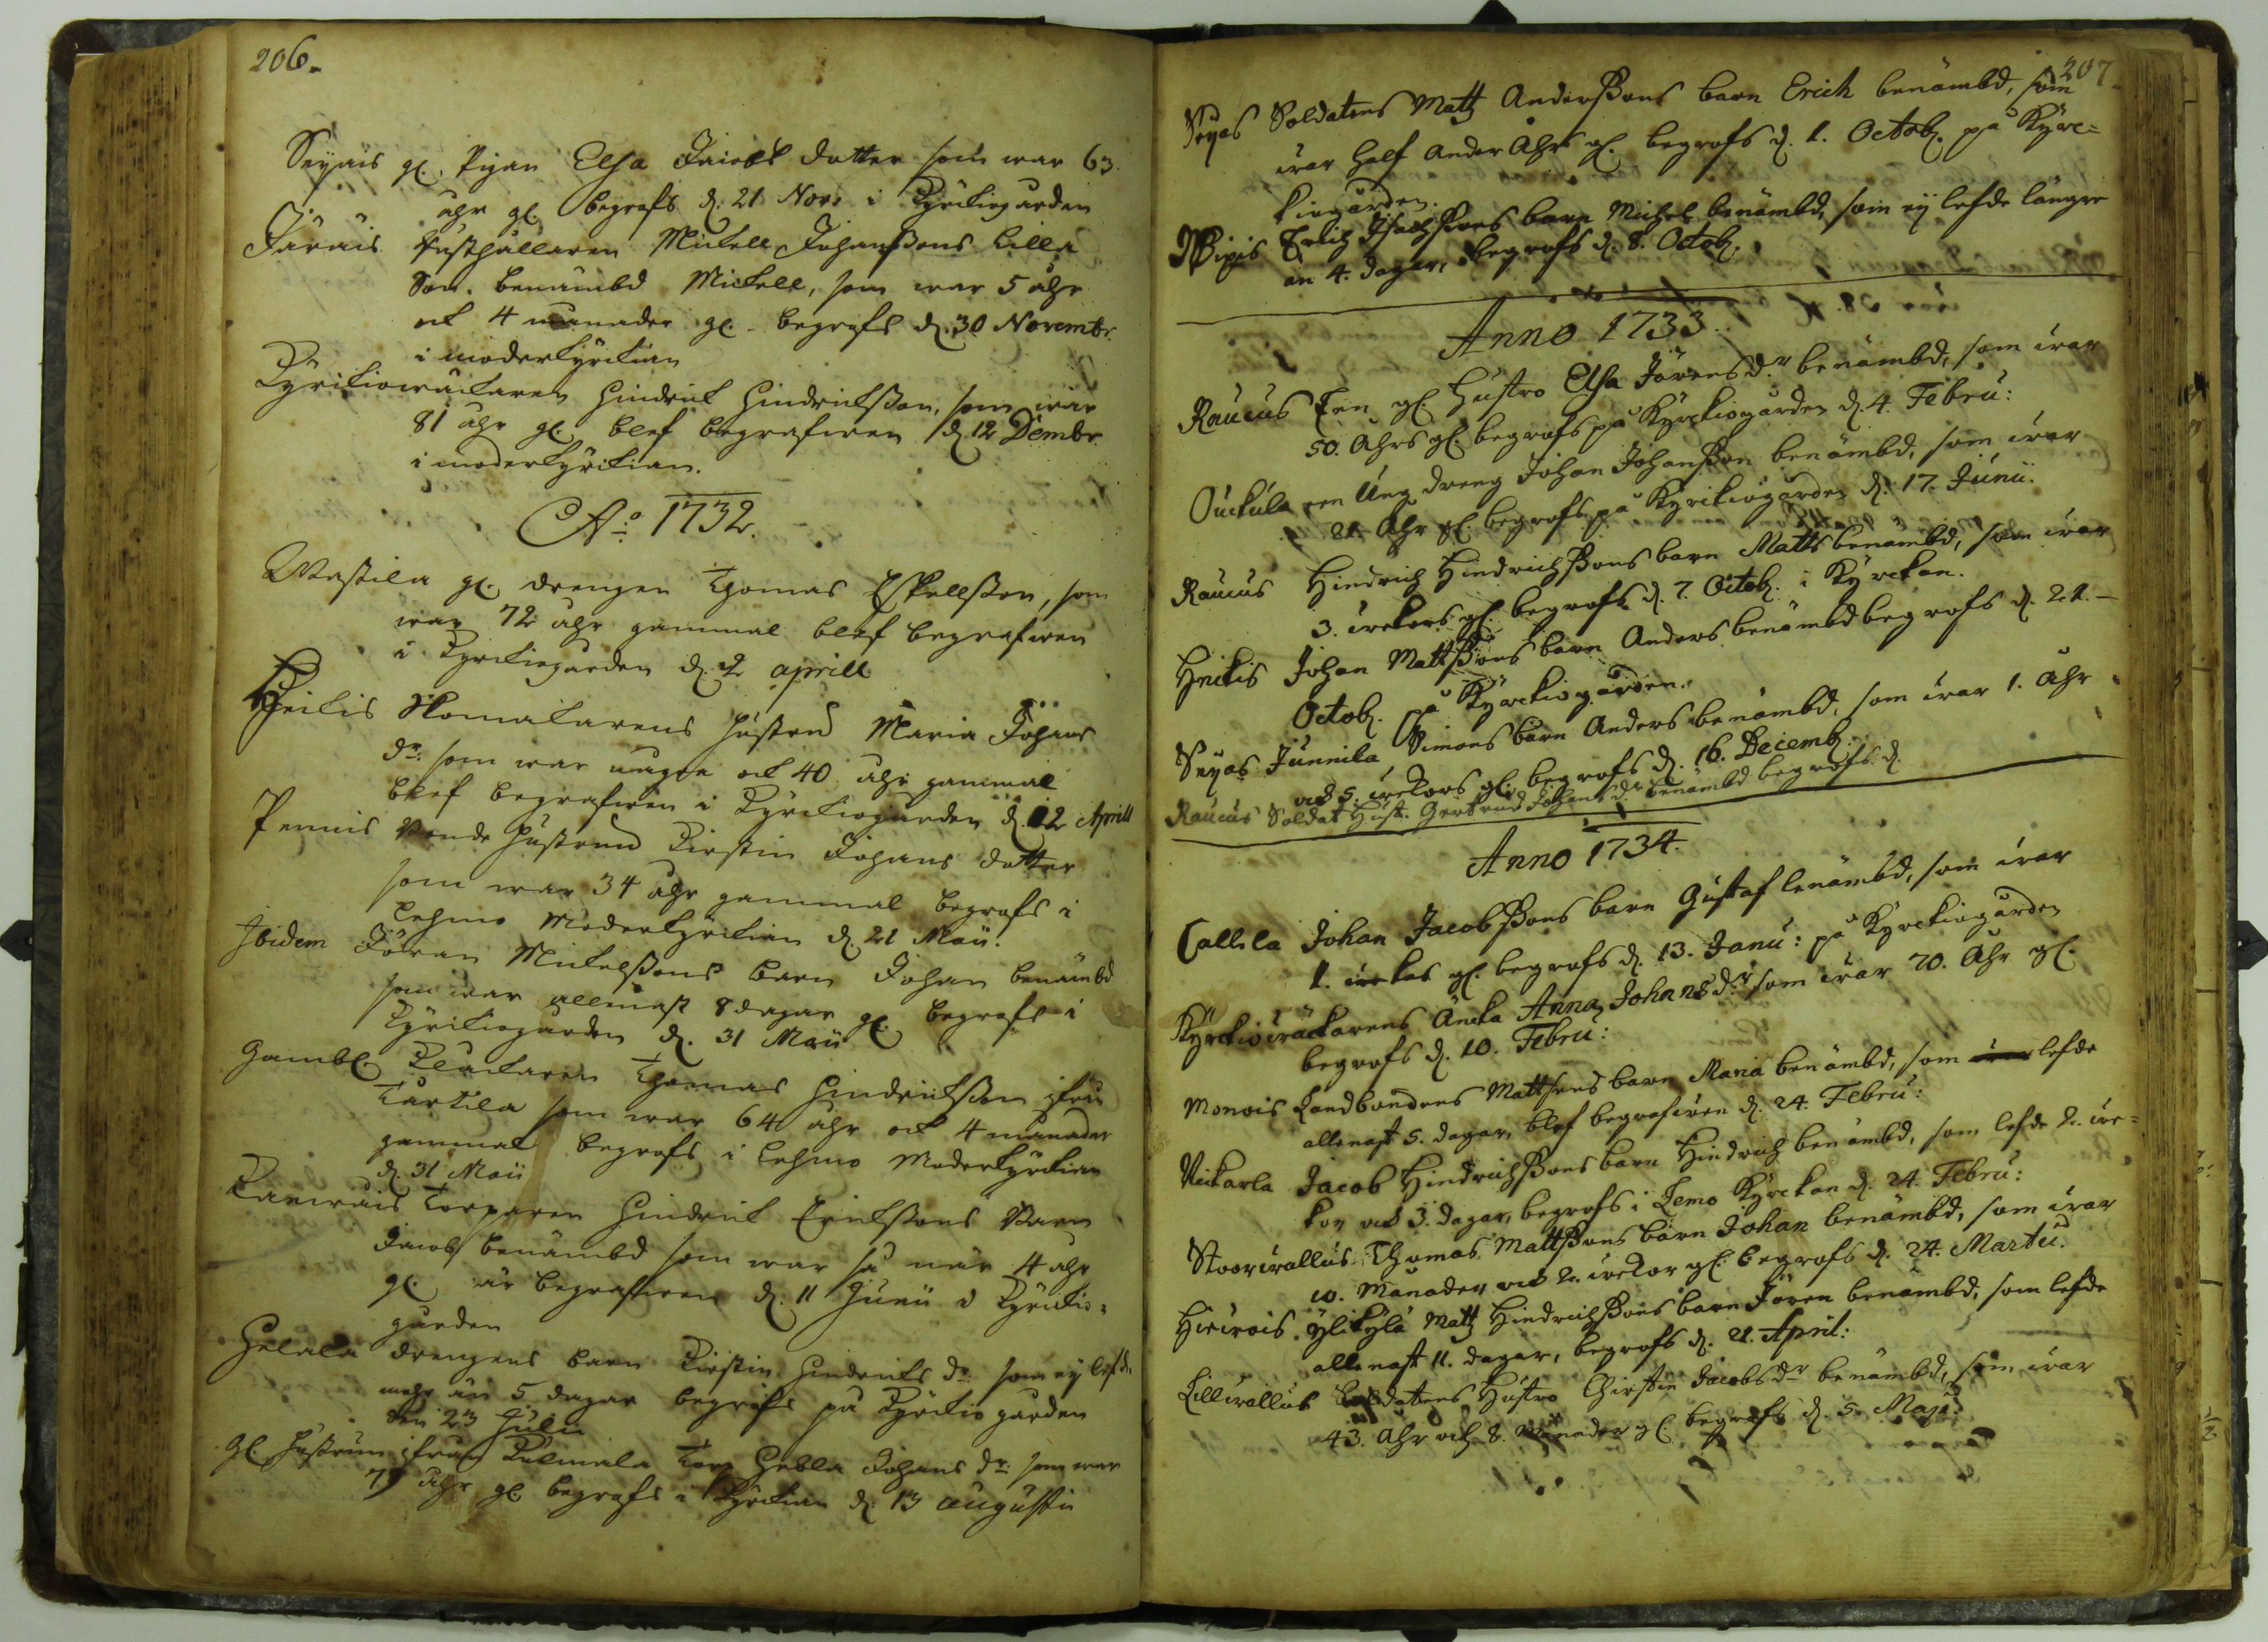 206.
Seyais gl. Pigan Elsa Jacobs dotter som war 63
åhr gl. begrofs d. 21 Nov: i Kyrkiogården
Järäis Rusthållaren Mickell Johanssons lilla
Son. benämbd Mickell, som war 5 åhr
och 4 månader gl. begrofs d. 30 Novembr.
i moderkyrkian
Kyrkiowäktaren Hindrich Hindrichsson, som war
81 åhr gl. blef begrafwen d. 12 Dembr.
i moderkyrkian.
Ao. 1732.
Wastila gl. drengen Thomas Eskellsson, som
war 72 åhr gammal blef begrafwen
i Kyrkiogården d. 2 aprill
Heikis Skomakarens hustru Maria Johans
dr: som war unge och 40 åhr gammal
blef begrafwen i Kyrkiogården d. 12 Aprill
Pennis Bonde hustrun Kirstin Johans dotter
som war 34 åhr gammal begrofs i
Lehmo Moderkyrkian d. 21 Maii.
Ibidem Jöran Mickelssons barn Johan benämbd
som war allenast 8 dagar gl. begrofs i
Kyrkiogården d. 31 Maii
Gambl. Klockaren Thomas Hindrichsson ifrån
Kurkila som war 64 åhr och 4 månader
gammal begrofs i Lehmo Moderkyrkian
d. 31 Maii
Torparen Hindrich Erichssons Barn
Jacob benämbd som war så när 4 åhr
gl. är begrafwen d. 11 Junii i Kyrkio-
gården
drengens barn Kirstin Hindrichs dr: som ej lefde
mehr än 5 dagar begrofs på Kyrkio gården
den 23 Julii
Gl. hustrun ifrån Kulmala Torp Hebla Johans dr: som war
79 åhr gl. begrofs i Kyrkian d. 13 augustii
207.
Seyas Soldatens Matz Anderssons barn Erich benämbd, som
war half annor Åhrs gl. begrofs d. 1. Octob. på Kyrc-
kiogården.
Erich Isachssons barn Michel benämbd, som ej lefde längre
än 4. dagar, begrofs d. 8. Octob.
Anno 1733.
Raucus Een gl. Hustro Elsa Jörensdr benämbd, som war
50. Åhrs gl. begrofs på Kyrckiogården d. 4. Febru:
Ouckula een Ung dreng Johan Johansson benämbd, som war
21. Åhr gl. begrofs på Kyrkiogården d. 17. Junii.
Raucus Hindrich Hindrichssons barn Matts benämbd, som war
3. wekors gl. begrofs d. 7. Octob. i Kyrckan.
Heikis Johan Mattssons barn Anders benämbd begrofs d. 21.
Octob. på Kyrckiogården.
Seyas Junnila Simons barn Anders benämbd, som war 1. Åhr
och 5. wekors gl. begrofs d. 16. Decemb.
Raucus Soldat Hust. Gertrud Johans dr benämbd begrofs d.
Anno 1734.
Callela Johan Jacobssons barn Gustaf benämbd, som war
1. wekas gl. begrofs d. 13. Janu: på Kyrckiogården
Kyrckiowäcktarens Äncka Anna Johansdr som war 70. Åhr gl.
begrofs d. 10. Febru:
Monois Landbondens Mattsons barn Maria benämbd, som war lefde
allenast 5. dagar, blef begrafwen d. 24. Febru:
Nickarla Jacob Hindrichssons barn Hindrich benämbd, som lefde 2. we-
kor och 3. dagar, begrofs i Lemo Kyrckan d. 24. Febru:
Stoorwallus Thomas Mattssons barn Johan benämbd, som war
10. Månader och 2. wekor gl. begrofs d. 24. Martii.
Hierois Ylikylä Matz Hindrichssons barn Jören benämbd, som lefde
allenast 11. dagar, begrofs d. 21. April:
Lillwallus Soldatens Hustro Chirstin Jacobsdr benämbd, som war
43. Åhr och 8. Månader gl. begrofs d. 5. Maji.